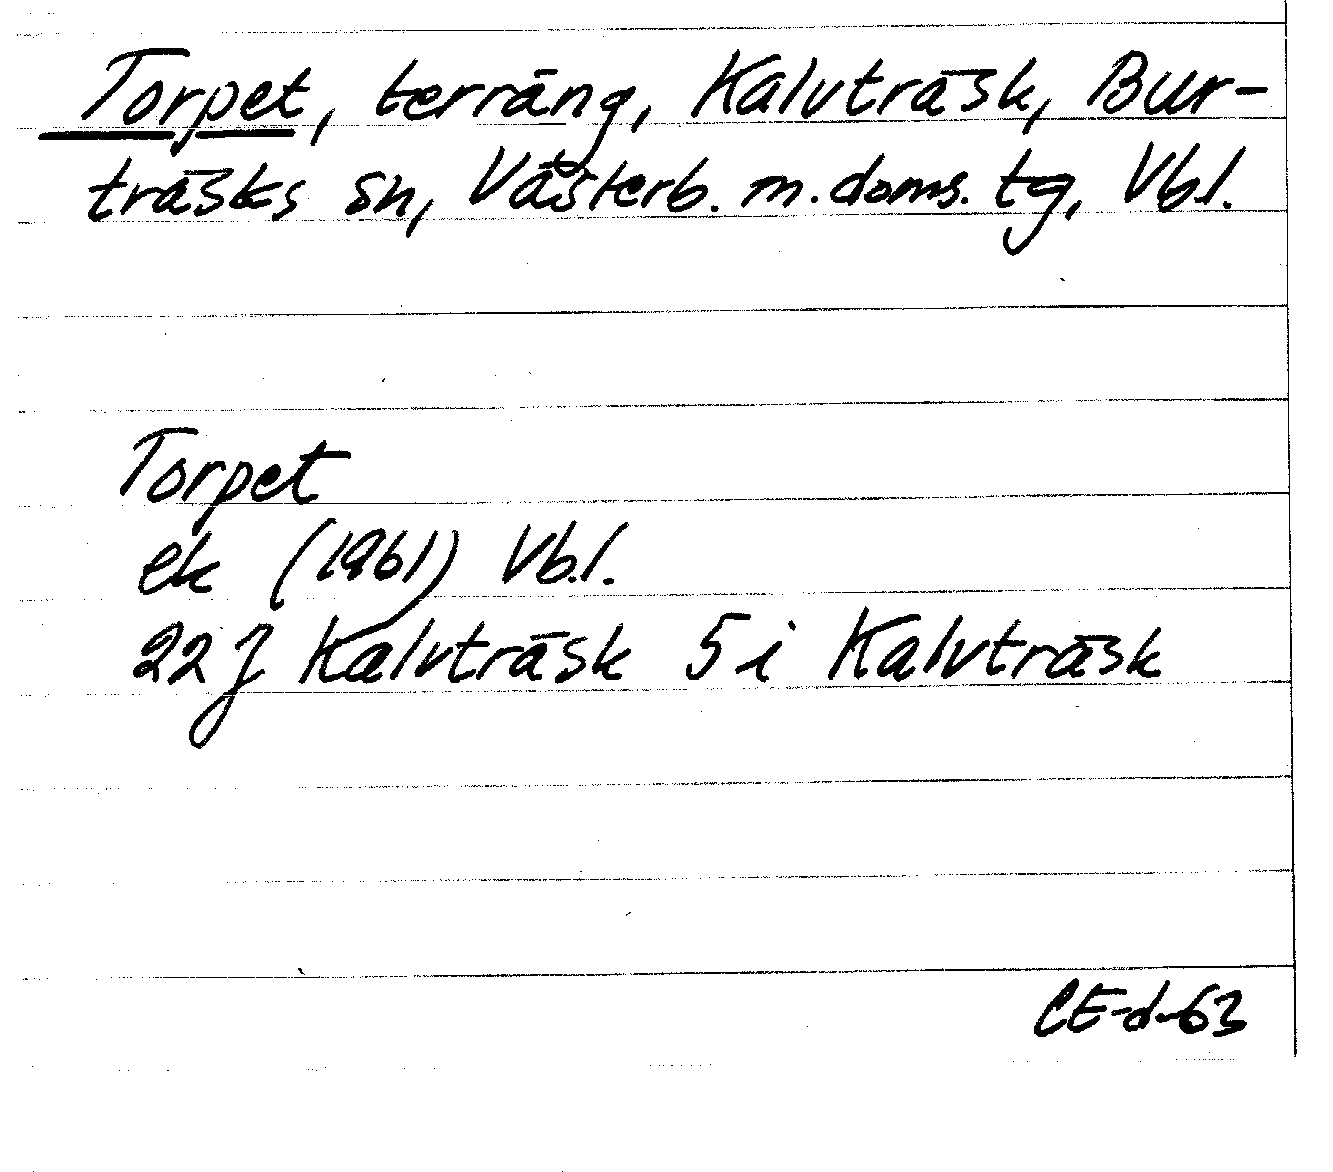 Torpet, terräng, Kalvträsk, Bur-
träsks sn, Västerb. m. doms. tg, Vbl.
Torpet
ek (1961) Vbl.
22 J Kalvträsk 5 i Kalvträsk
CE-d-63